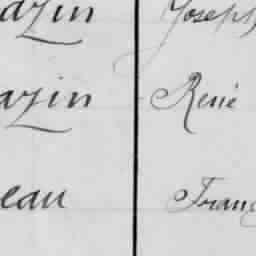 azin Joseph
azin René
eau Franç